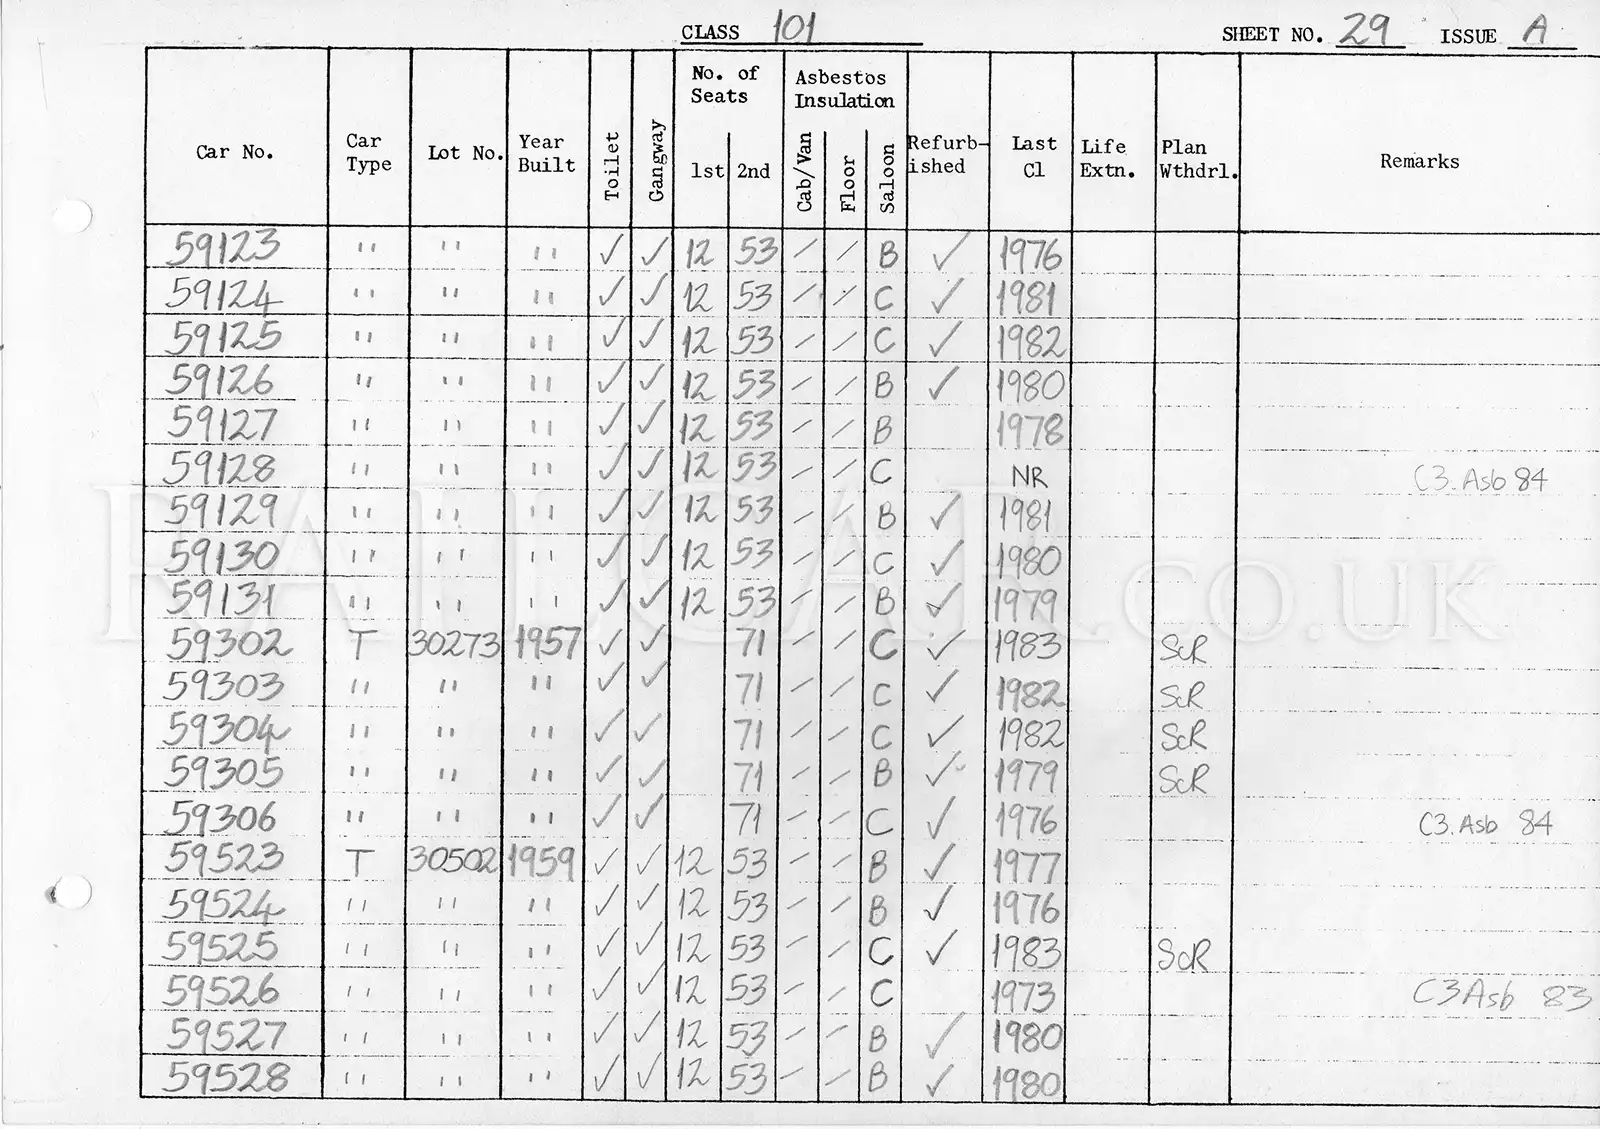 CLASS 101 SHEET NO. 29 ISSUE A
Car No. Car Type Lot No. Year Built Toilet Gangway No. of Seats 1st 2nd Asbestos Insulation Cab/Van Floor Saloon Refurb-ished Last Cl Life Extn. Plan Wthdrl. Remarks
59123 " " " ✓ ✓ 12 53 / / B ✓ 1976
59124 " " " ✓ ✓ 12 53 / / C ✓ 1981
59125 " " " ✓ ✓ 12 53 / / C ✓ 1982
59126 " " " ✓ ✓ 12 53 / / B ✓ 1980
59127 " " " ✓ ✓ 12 53 / / B 1978
59128 " " " ✓ ✓ 12 53 / / C NR C3.Asb 84
59129 " " " ✓ ✓ 12 53 / / B ✓ 1981
59130 " " " ✓ ✓ 12 53 / / C ✓ 1980
59131 " " " ✓ ✓ 12 53 / / B ✓ 1979
59302 T 30273 1957 ✓ ✓ 71 / / C ✓ 1983 ScR
59303 " " " ✓ ✓ 71 / / C ✓ 1982 ScR
59304 " " " ✓ ✓ 71 / / C ✓ 1982 ScR
59305 " " " ✓ ✓ 71 / / B ✓ 1979 ScR
59306 " " " ✓ ✓ 71 / / C ✓ 1976 C3.Asb 84
59523 T 30502 1959 ✓ ✓ 12 53 / / B ✓ 1977
59524 " " " ✓ ✓ 12 53 / / B ✓ 1976
59525 " " " ✓ ✓ 12 53 / / C ✓ 1983 ScR
59526 " " " ✓ ✓ 12 53 / / C 1973 C3Asb 83
59527 " " " ✓ ✓ 12 53 / / B ✓ 1980
59528 " " " ✓ ✓ 12 53 / / B ✓ 1980
RAILCAR.CO.UK